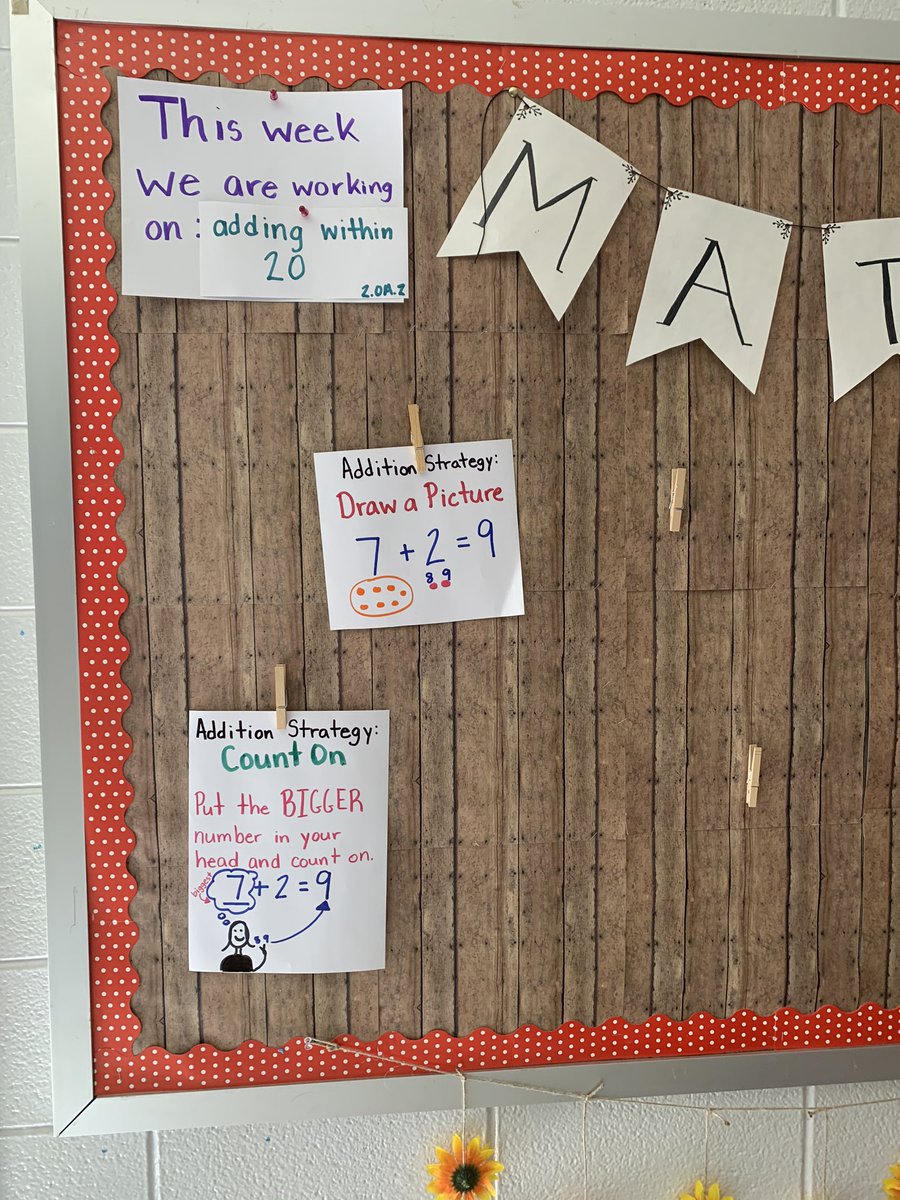 This week
we are working
on: adding within
20
2.OA.2
M A T
Addition Strategy:
Draw a Picture
7 + 2 = 9
8 9
Addition Strategy:
Count On
Put the BIGGER
number in your
head and count on.
biggest
7 + 2 = 9
8 9